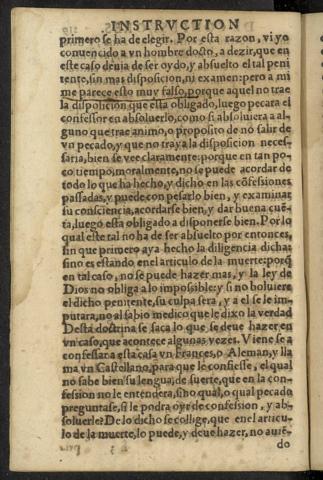 INSTRVCTION
primero se ha de elegir. Por esta razon, vi yo
convencido a vn hombre docto, a dezir, que en
este caso deuia de ser oydo, y absuelto el tal peni
tente, sin mas disposicion, ni examen: pero a mi
me parece esto muy falso, porque aquel no trae
la disposicion que esta obligado, luego pecara el
confessor en absoluerlo, como si absoluiera a al-
guno que trae animo, o proposito de no salir de
vn pecado, y que no traya la disposicion neces-
saria, bien se vee claramente: porque en tan po-
co tiempo, moralmente, no se puede acordar de
todo lo que ha hecho, y dicho en las cõfessiones
passadas, y puede con pesarlo bien, y examinar
su consciencia, acordarse bien, y dar buena cuẽ-
ta, luego esta obligado a disponerse bien. Por lo
qual este tal no ha de ser absuelto por entonces,
sin que primero aya hecho la diligencia dicha:
sino es estando en el articulo de la muerte: porq̃
en tal caso, no se puede hazer mas, y la ley de
Dios no obliga a lo imposible: y si no boluiere
el dicho penitente, su culpa sera, y a el se le im-
putara, no al sabio medico que le dixo la verdad
Desta doctrina se saca lo que se deue hazer en
vn caso, que acontece algunas vezes. Viene se a
confessar a esta casa vn Frances, o Aleman, y lla
ma vn Castellano, para que le confiesse, el qual
no sabe bien su lengua, de suerte, que en la con-
fession no le entendera, sino qual, o qual pecado
preguntase, si le podra oyr de confession, y ab-
soluerle? De lo dicho se collige, que en el articu-
lo de la muerte, lo puede, y deue hazer, no auiẽ-
do